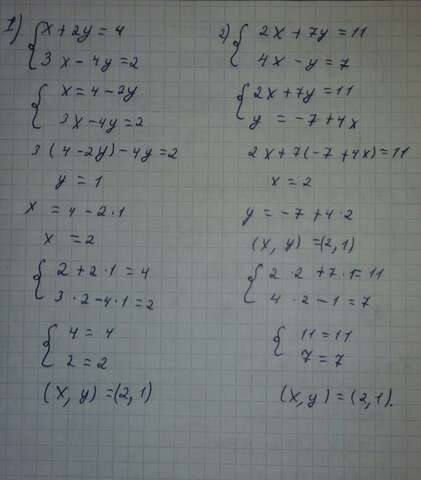 1) { x + 2y = 4
3x - 4y = 2
{ x = 4 - 2y
3x - 4y = 2
3(4 - 2y) - 4y = 2
y = 1
x = 4 - 2·1
x = 2
{ 2 + 2·1 = 4
3·2 - 4·1 = 2
{ 4 = 4
2 = 2
(x, y) = (2, 1)
2) { 2x + 7y = 11
4x - y = 7
{ 2x + 7y = 11
y = -7 + 4x
2x + 7(-7 + 4x) = 11
x = 2
y = -7 + 4·2
(x, y) = (2, 1)
{ 2·2 + 7·1 = 11
4·2 - 1 = 7
{ 11 = 11
7 = 7
(x, y) = (2, 1).